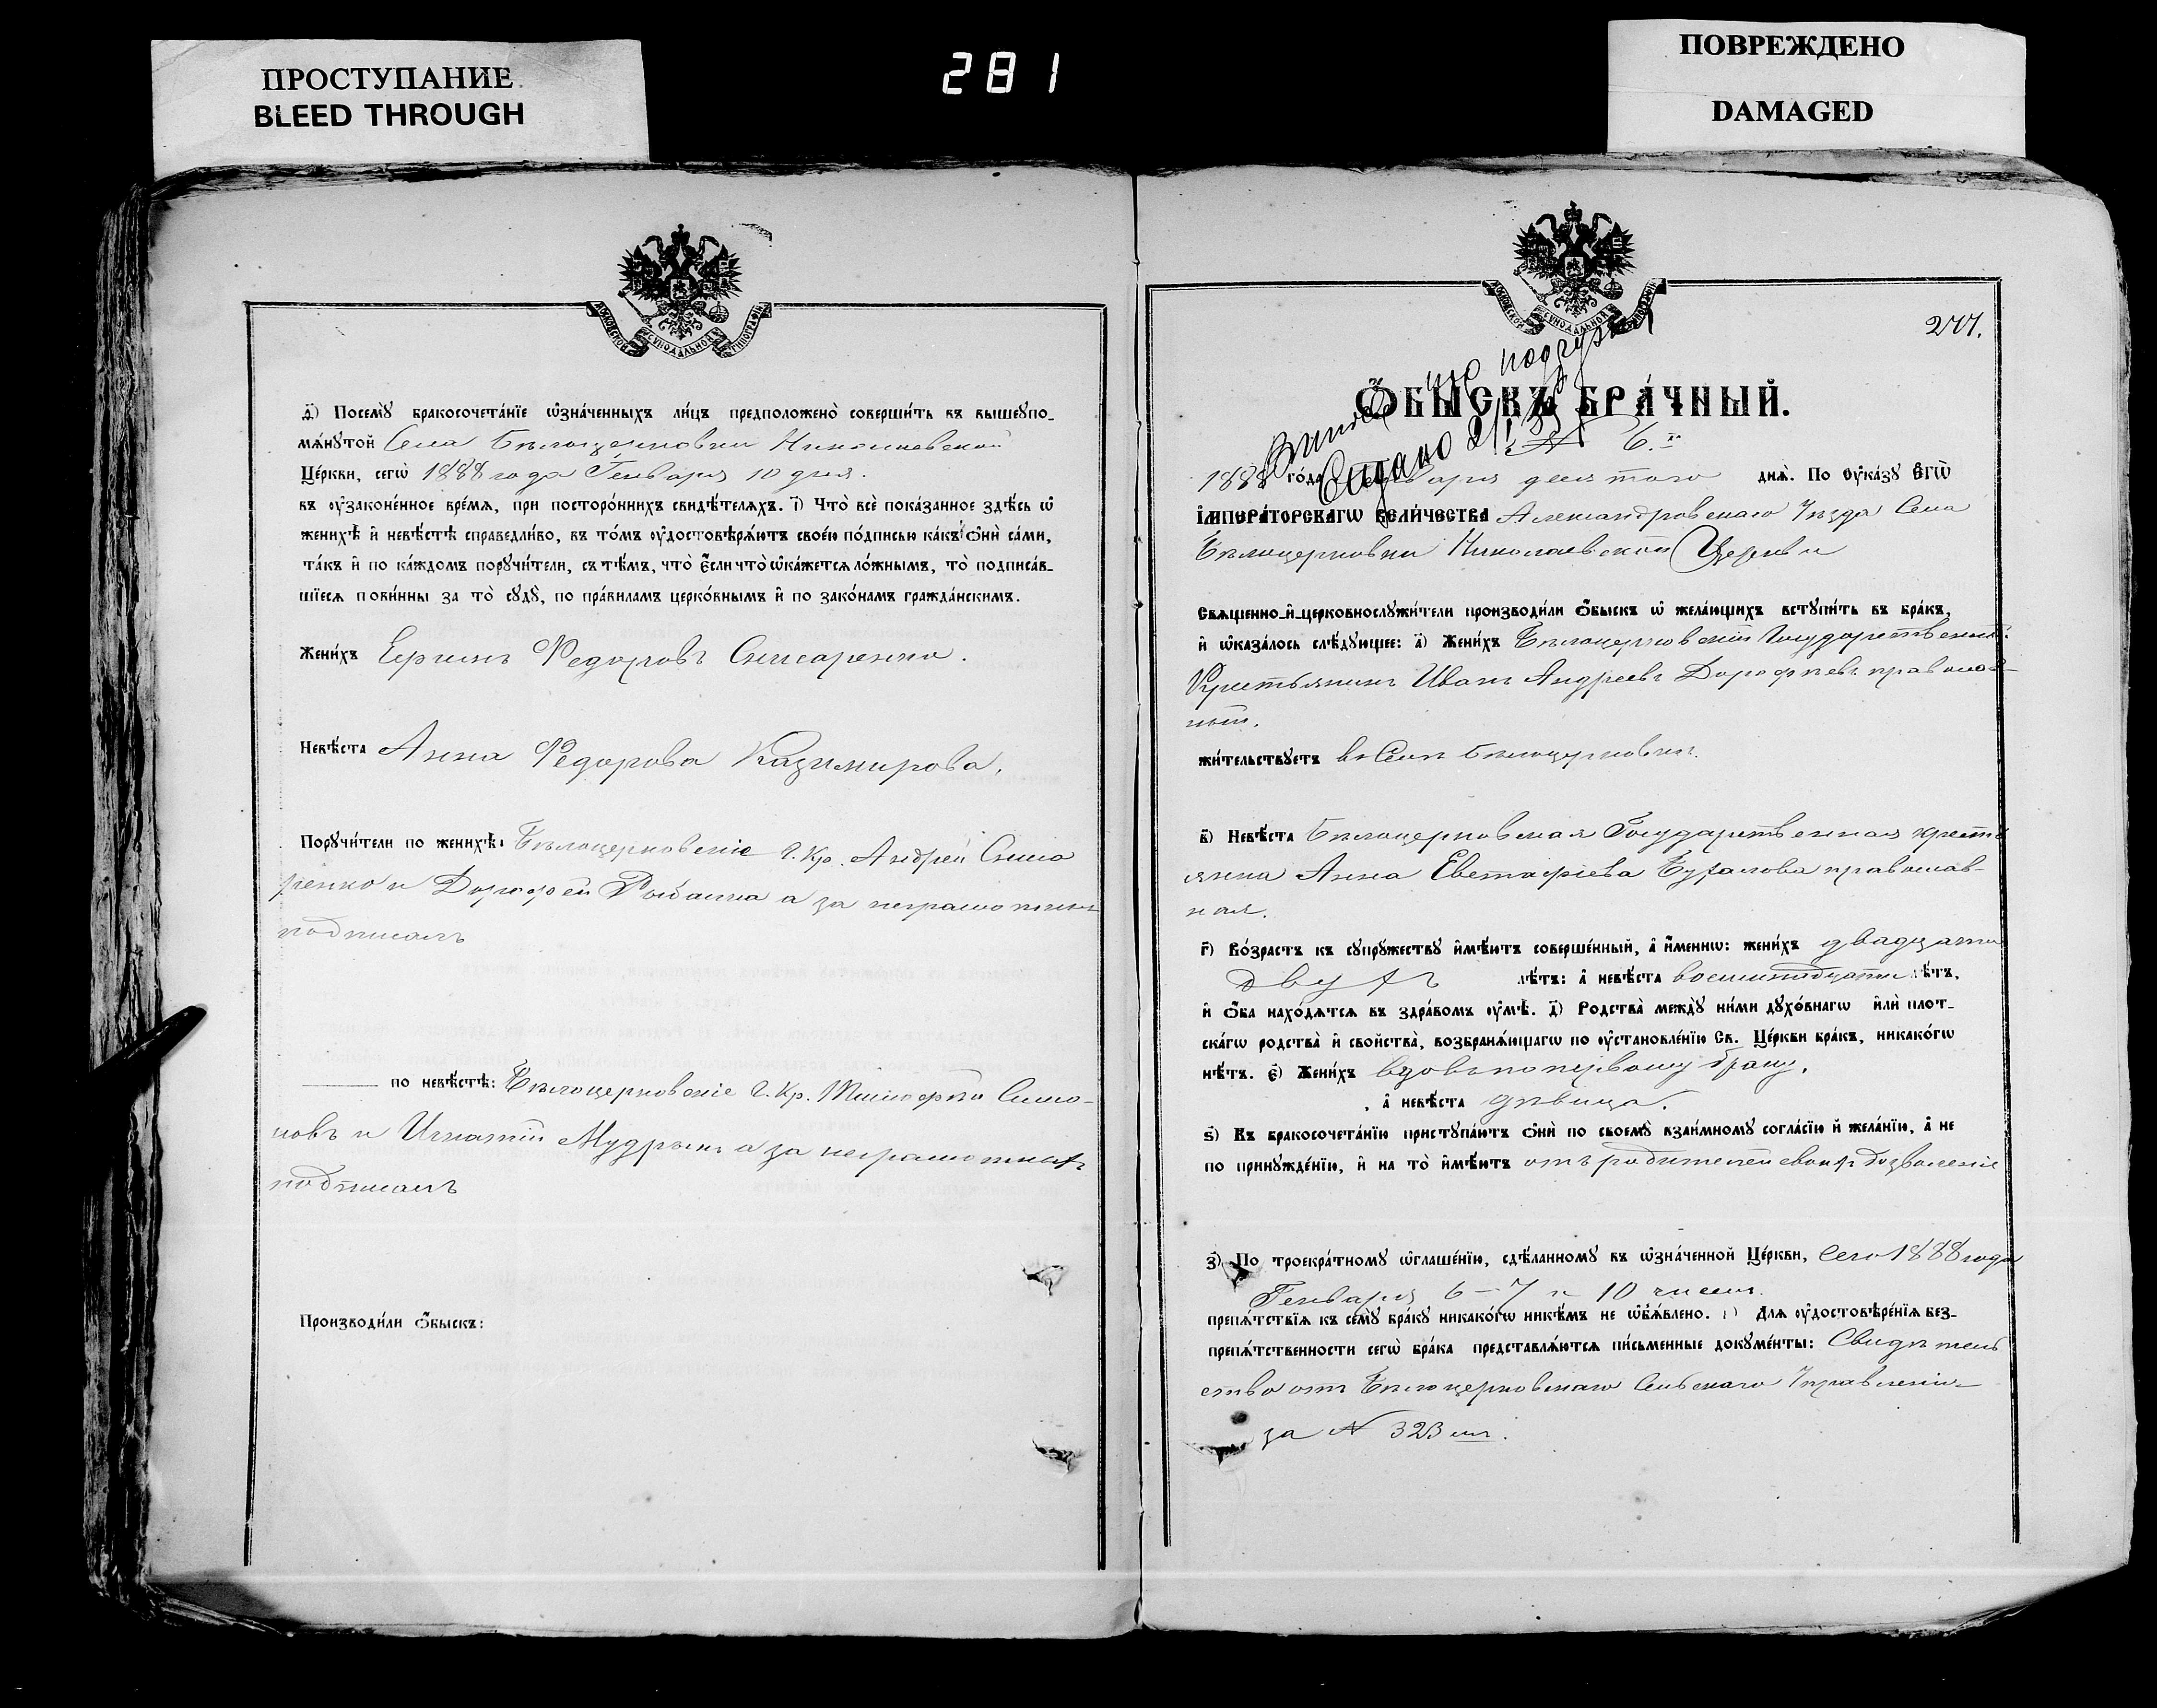 ПРОСТУПАНИЕ
BLEED THROUGH
281
ПОВРЕЖДЕНО
DAMAGED
МОСКОВСКОЙ СѴНОДАЛЬНОЙ ТИПОГРАФІИ
д҃) Посемꙋ̀ бракосочета́нїе ѡ҆зна́ченныхъ ли́цъ предположено̀ соверши́ть въ вышеꙋпо-
мѧ́нꙋтой Села Бѣлоцерковки Николаевской
Це́ркви, сегѡ̀ 1888 года Генваря 10 дня.
въ ᲂу҆зако́ненное вре́мѧ, при посторо́ннихъ свидѣ́телѧхъ. і҃) Что̀ всѐ пока́занное здѣ́сь ѡ҆
женихѣ̀ и҆ невѣ́стѣ справедли́во, въ то́мъ ᲂу҆достовѣрѧ́ютъ свое́ю по́дписью ка́къ ѻ҆нѝ са́ми,
та́къ и҆ по ка́ждомъ порꙋчи́тели, съ тѣ́мъ, что̀ є҆́сли что̀ ѡ҆ка́жетсѧ ло́жнымъ, то̀ подписа́в-
шїесѧ пови́нны за то̀ сꙋдꙋ̀, по пра́виламъ церко́внымъ и҆ по зако́намъ гражда́нскимъ.
Жени́хъ Ефимъ Ѳедоровъ Снисаренко.
Невѣ́ста Анна Ѳедорова Казимирова.
Порꙋчи́тели по женихѣ̀: Бѣлоцерковскіе Г. Кр. Андрей Сниса
ренко и Дорофей Рыбалка а за неграмотныхъ
подписалъ
по невѣ́стѣ: Бѣлоцерковскіе Г. Кр. Тимофей Симо-
новъ и Игнатій Мудрыкъ а за неграмотныхъ
подписалъ
Производи́ли ѻ҆́быскъ:
МОСКОВСКОЙ СѴНОДАЛЬНОЙ ТИПОГРАФІИ
277.
Ѻ҆́БЫСКЪ БРА́ЧНЫЙ.
№ 6.й
1888 го́да Генваря десятого днѧ̀. По ᲂу҆ка́зꙋ Є҆гѡ̀
І҆мпера́торскагѡ Вели́чества Александровскаго Уѣзда Села
Бѣлоцерковки Николаевской Церкви
Свѧще́нно-и҆-церковнослꙋжи́тели производи́ли ѻ҆́быскъ ѡ҆ жела́ющихъ встꙋпи́ть въ бра́къ,
и҆ ѡ҆каза́лось слѣ́дꙋющее: а҃) Жени́хъ Бѣлоцерковскій Государственный
Крестьянинъ Иванъ Андреевъ Дорофѣевъ православ-
ный.
жи́тельствꙋетъ въ Селѣ Бѣлоцерковкѣ.
в҃) Невѣ́ста Бѣлоцерковская Государственная кресть
янка Анна Евстафіева православ-
ная.
г҃) Во́зрастъ къ сꙋпрꙋ́жествꙋ и҆мѣ́ютъ соверше́нный, а҆ и҆́меннѡ: жени́хъ двадцати
двухъ лѣ́тъ: а҆ невѣ́ста восемнадцати лѣ́тъ,
и҆ ѻ҆́ба нахо́дѧтсѧ въ здра́вомъ ᲂу҆мѣ̀. д҃) Родства̀ междꙋ̀ ни́ми дꙋхо́внагѡ и҆лѝ плот-
ска́гѡ родства̀ и҆ сво́йства, возбранѧ́ющагѡ по ᲂу҆становле́нїю Св. Це́ркви бра́къ, никако́гѡ
нѣ́тъ. є҃) Жени́хъ вдовъ по первому браку,
, а҆ невѣ́ста дѣвица.
ѕ҃) Къ бракосочета́нїю пристꙋпа́ютъ ѻ҆нѝ по своемꙋ̀ взаи́мномꙋ согла́сїю и҆ жела́нїю, а҆ не
по принꙋжде́нїю, и҆ на то̀ и҆мѣ́ютъ отъ родителей своихъ дозволеніе
з҃) По троекра́тномꙋ ѡ҆глаше́нїю, сдѣ́ланномꙋ въ ѡ҆зна́ченной Це́ркви, сего 1888 года
Генваря 6 – 7 и 10 чиселъ.
препѧ́тствїѧ къ семꙋ̀ бра́кꙋ никако́гѡ никѣ́мъ не ѡ҆б̾ѧ́влено. и҃) Длѧ ᲂу҆достовѣре́нїѧ без-
препѧ́тственности сегѡ̀ бра́ка представлѧ́ютсѧ пи́сьменные докꙋме́нты: Свидѣтель
ство отъ Бѣлоцерковскаго Сельскаго Управленія
за № 323мъ.